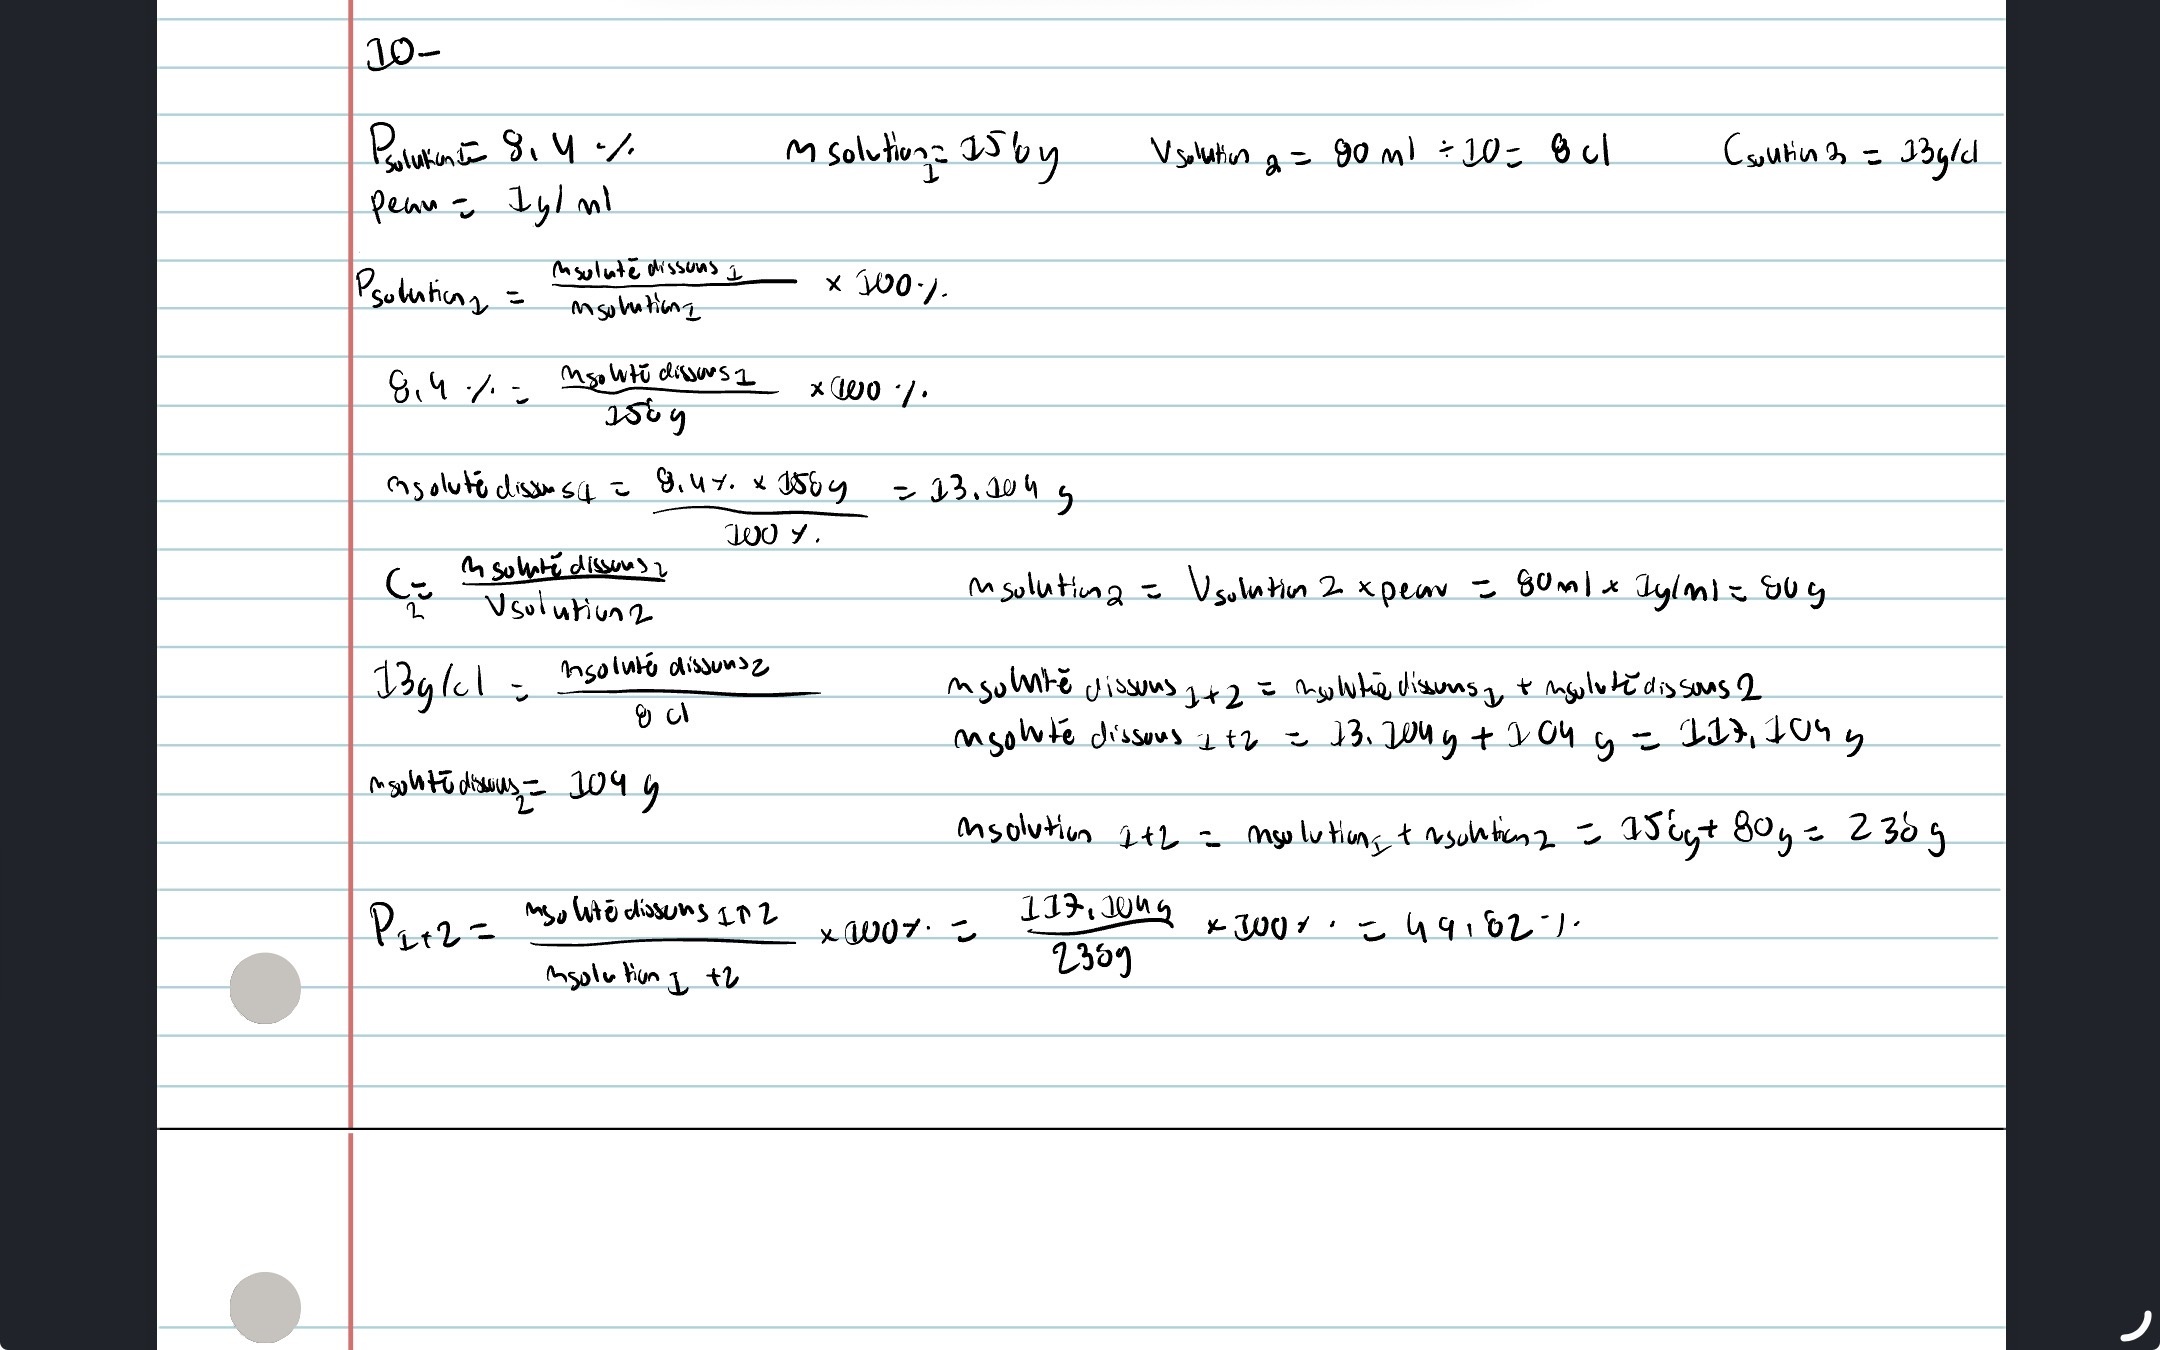 10-
Psolution1= 8,4 % msolution1= 156g Vsolution 2 = 80 ml ÷ 10 = 8 cl Csoution 2 = 13g/cl
peau = 1g/ml
Psolution1 = msoluté dissous 1 / msolution1 × 100 %.
8,4 % = msoluté dissous 1 / 156g × 100 %.
msoluté dissous1 = 8,4 %. × 156g / 100 %. = 13.104 g
C2 = msoluté dissous2 / Vsolution2 msolution2 = Vsolution 2 × peau = 80ml × 1g/ml = 80g
13g/cl = msoluté dissous2 / 8 cl msoluté dissous 1+2 = msoluté dissous1 + msoluté dissous 2
msoluté dissous 1+2 = 13.104g + 104 g = 117,104 g
msoluté dissous2 = 104 g
msolution 1+2 = msolution1 + msolution2 = 156g + 80g = 236g
P1+2 = msoluté dissous 1+2 / msolution1 +2 × 100%. = 117,104g / 236g × 100%. = 49,62 %.